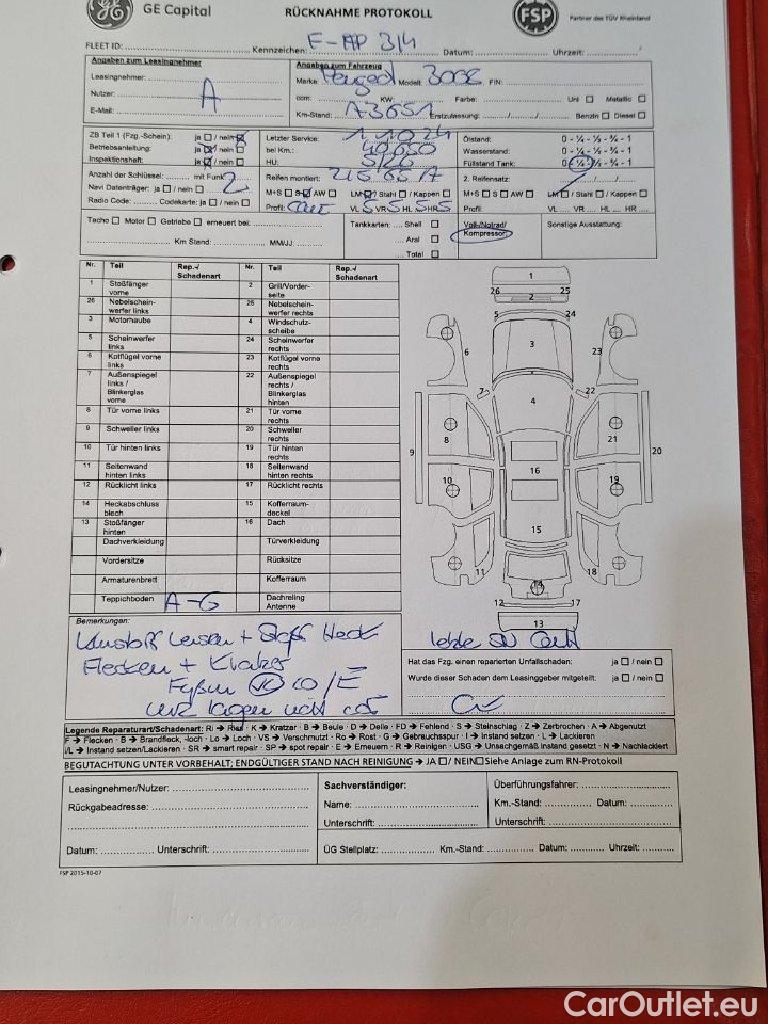 GE Capital
RÜCKNAHME PROTOKOLL
FSP
Partner des TÜV Rheinland
FLEET ID: Kennzeichen: F-AP 314 Datum: Uhrzeit:
Angaben zum Leasingnehmer
Leasingnehmer:
Nutzer: A
E-Mail:
Angaben zum Fahrzeug
Marke: Peugeot Modell: 3008 FIN:
ccm: KW: Farbe: Uni Metallic
Km-Stand: 73651 Erstzulassung: Benzin Diesel
ZB Teil 1 (Fzg.-Schein): ja / nein
Betriebsanleitung: ja / nein
Inspektionsheft: ja / nein
Letzter Service: 11024
bei Km.:
HU: 5/26
Ölstand: 0 - ¼ - ½ - ¾ - 1
Wasserstand: 0 - ¼ - ½ - ¾ - 1
Füllstand Tank: 0 - ¼ - ½ - ¾ - 1
Anzahl der Schlüssel: mit Funk 2
Navi Datenträger: ja / nein
Radio Code: Codekarte: ja / nein
Reifen montiert: 215 65 17
M+S S AW LM / Stahl / Kappen
Profil: VL 5 VR 5 HL 5 HR 5
2. Reifensatz:
M+S S AW LM / Stahl / Kappen
Profil: VL HL HR
Tacho Motor Getriebe erneuert bei:
Km Stand: MM/JJ:
Tankkarten: Shell
Aral
Total
Voll-/Notrad/
Kompressor
Sonstige Ausstattung:
Nr. Teil Rep.-/ Schadenart Nr. Teil Rep.-/ Schadenart
1 Stoßfänger vorne 2 Grill/Vorderseite
26 Nebelscheinwerfer links 25 Nebelscheinwerfer rechts
3 Motorhaube 4 Windschutzscheibe
5 Scheinwerfer links 24 Scheinwerfer rechts
6 Kotflügel vorne links 23 Kotflügel vorne rechts
7 Außenspiegel links / Blinkerglas vorne 22 Außenspiegel rechts / Blinkerglas hinten
8 Tür vorne links 21 Tür vorne rechts
9 Schweller links 20 Schweller rechts
10 Tür hinten links 19 Tür hinten rechts
11 Seitenwand hinten links 18 Seitenwand hinten rechts
12 Rücklicht links 17 Rücklicht rechts
14 Heckabschluss blech 15 Kofferraumdeckel
13 Stoßfänger hinten 16 Dach
Dachverkleidung Türverkleidung
Vordersitze Rücksitze
Armaturenbrett Kofferraum
Teppichboden A-G Dachreling Antenne
1
26 25
2
5 24
3
6 23
7 22
4
8 21
9 20
10 19
16
15
11 18
14
12 17
13
Bemerkungen:
Flecken + Kratzer
Hat das Fzg. einen reparierten Unfallschaden: ja / nein
Wurde dieser Schaden dem Leasinggeber mitgeteilt: ja / nein
Legende Reparaturart/Schadenart: Ri → Riss - K → Kratzer - B → Beule - D → Delle - FD → Fehlend - S → Steinschlag - Z → Zerbrochen - A → Abgenutzt
F → Flecken - B → Brandfleck, -loch - Lo → Loch - VS → Verschmutzt - Ro → Rost - G → Gebrauchsspur - I → instand setzen - L → Lackieren
I/L → Instand setzen/Lackieren - SR → smart repair - SP → spot repair - E → Erneuern - R → Reinigen - USG → Unsachgemäß instand gesetzt - N → Nachlackiert
BEGUTACHTUNG UNTER VORBEHALT; ENDGÜLTIGER STAND NACH REINIGUNG → JA / NEIN Siehe Anlage zum RN-Protokoll
Leasingnehmer/Nutzer:
Rückgabeadresse:
Datum: Unterschrift:
Sachverständiger:
Name:
Unterschrift:
Überführungsfahrer:
Km.-Stand: Datum:
Unterschrift:
ÜG Stellplatz: Km.-Stand: Datum: Uhrzeit:
FSP 2015-10-07
CarOutlet.eu